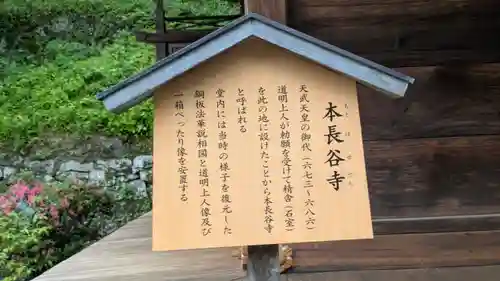 本長谷寺
もとはせでら
天武天皇の御代(六七三~六八六)
道明上人が勅願を受けて精舎(石室)
を此の地に設けたことから本長谷寺
と呼ばれる
堂内には当時の様子を復元した
銅板法華説相図と道明上人像及び
一箱べったり像を安置する